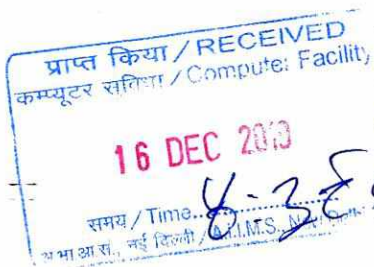 प्राप्त किया / RECEIVED
कम्प्यूटर सुविधा / Computer Facility
16 DEC
समय / Time
अ भा आ सं., नई दिल्ली / A.I.I.M.S.,